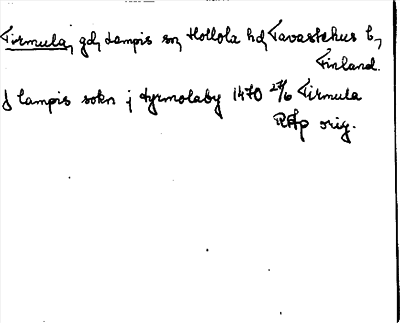 Tirmula, gd, Lampis sn, Hollola hd, Tavastehus l,
Finland.
J lampis sokn j tyrmolaby 1470 27/6 Tirmula
RAp orig.